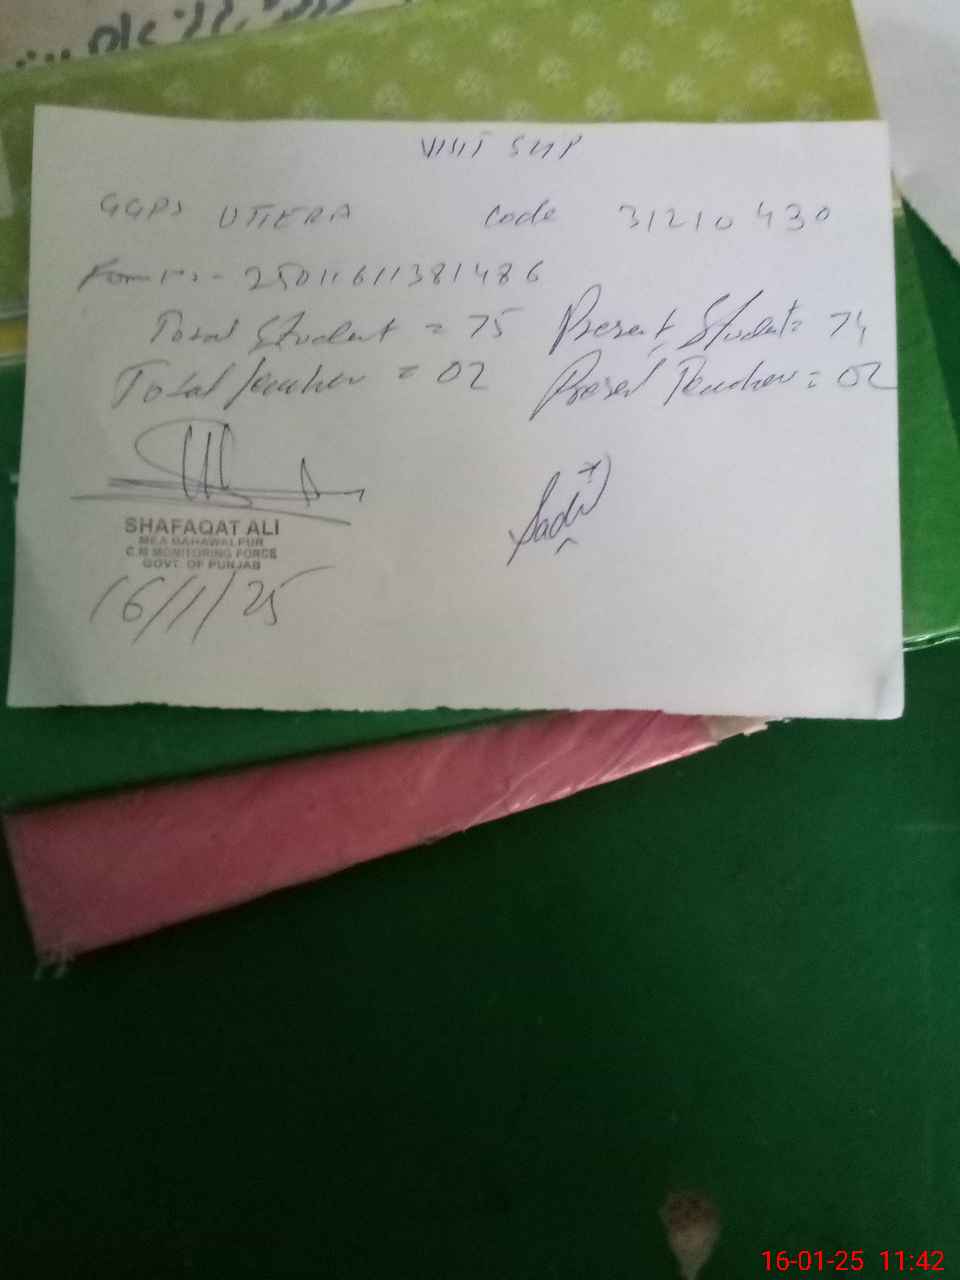 VISIT SLIP
GGPS UTIERA Code 31210430
Form no:- 25011611381486
Total Student = 75 Present Student = 74
Total Teacher = 02 Present Teacher = 02
SHAFAQAT ALI
MEA BAHAWALPUR
C.M MONITORING FORCE
GOVT. OF PUNJAB
16/1/25
16-01-25 11:42